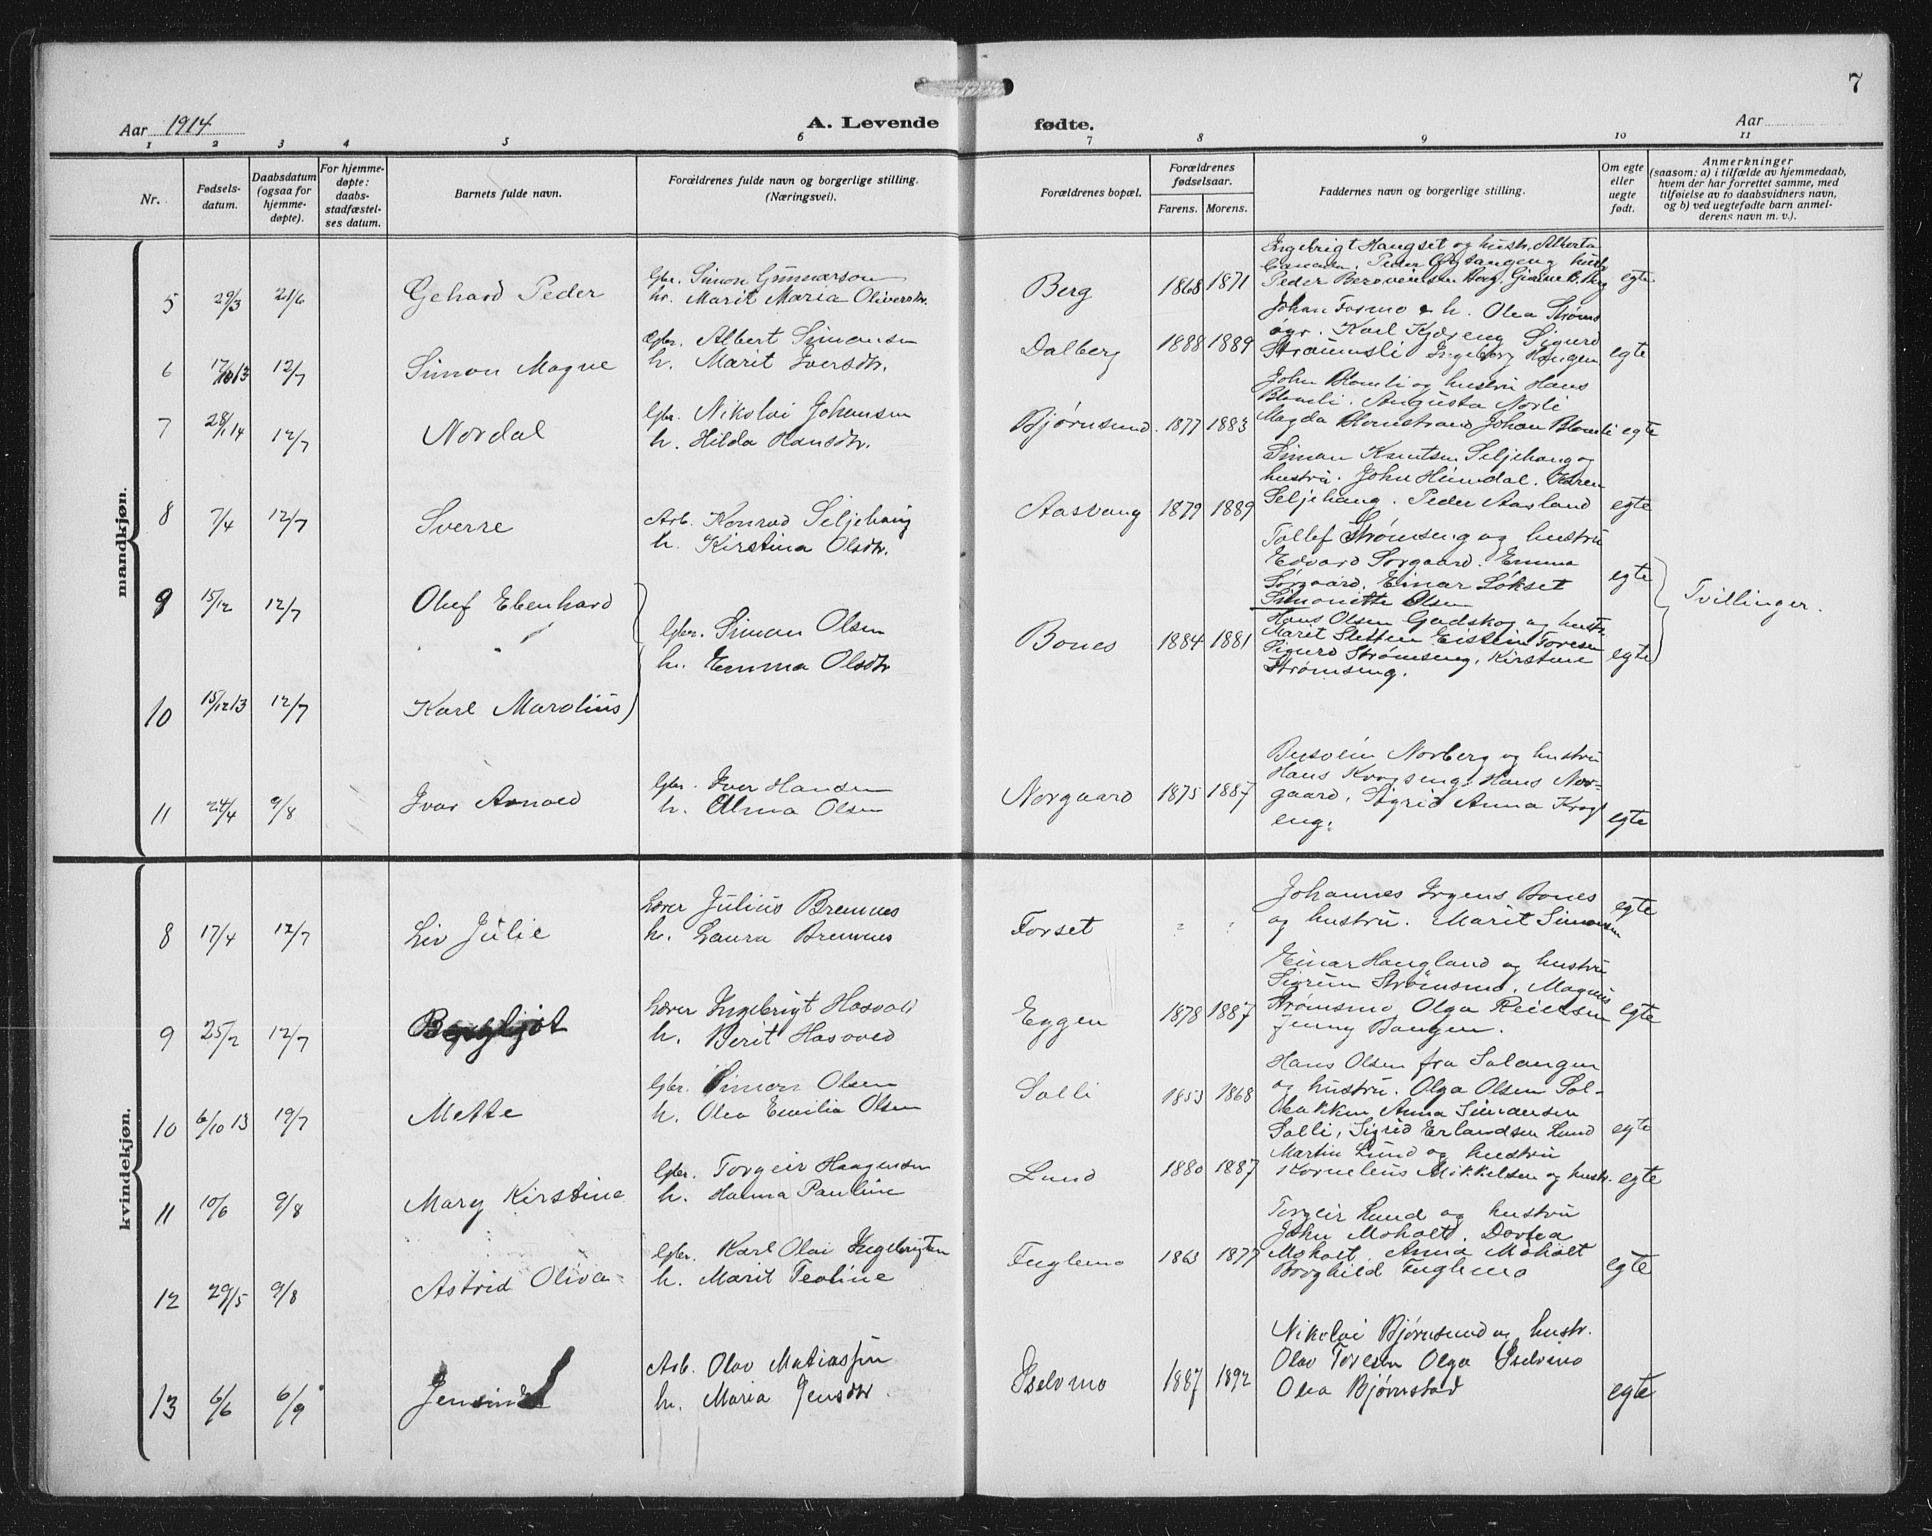 7
Aar 1914
A. Levende fødte.
Aar
1 2 3 4 5 6 7 8 9 10 11
Nr.
Fødsels-
datum.
Daabsdatum
(ogsaa for
hjemme-
døpte).
For hjemme-
døpte:
daabs-
stadfæstel-
ses datum.
Barnets fulde navn.
Forældrenes fulde navn og borgerlige stilling.
(Næringsvei).
Forældrenes bopæl.
Forældrenes
fødselsaar.
Farens. Morens.
Faddernes navn og borgerlige stilling.
Om egte
eller
uegte
født.
Anmerkninger
(saasom: a) i tilfælde av hjemmedaab,
hvem der har forrettet samme, med
tilføielse av to daabsvidners navn,
og b) ved uegtefødte barn anmel-
derens navn m. v.).
mandkjøn.
5 29/3 21/6 Gehard Peder
Gbr. Simon Gunnarson
h. Marit Maria Oliversdtr.
Berg 1868 1871
Ingebrigt Haugset og hustr. Alberta
egte
6 17/10 13 12/7 Simon Magne
Gbr. Albert Simonsen
h. Marit Iversdtr.
Dalberg 1888 1889
Johan Formo & h. Olea Strøms
øyr. Karl Kjæreng Sigurd
Straumsli Ingeborg Haugen
egte
7 28/1 14 12/7 Nordal
Gbr. Nikolai Johansen
h. Hilda Hansdtr.
Bjørnsund. 1877 1883
John Blomli og hustru Hans
Blomli. Augusta Norli
Magda Blomstrand Johan Blomli
egte
8 7/4 12/7 Sverre
Arb. Konrad Seljehaug
h. Kirstina Olsdtr.
Aasvang 1879 1889
Simon Knutsen Seljehaug og
hustru. John Heimdal. Karen
Seljehaug. Peder Aasland
egte
9 15/12 12/7 Oluf Ebenhard
Gbr. Simon Olsen
h. Emma Olsdtr
Bones 1884 1881
Tollef Strømseng og hustru
Edvard Sørgaard. Emma
Sørgaard. Einar Løkset
Simonitte Olsen
egte
Tvillinger.
10 15/12 13 12/7 Karl Marolius
Hans Olsen Gadskog og hustr.
Marit Sletten Eistein Toresen
Sigurd Strømseng, Kirstine
Strømseng.
egte
11 24/4 9/8 Ivar Arnold
Gbr. Iver Hansen
h. Alma Olsen
Norgaard 1875 1887
Norberg og hustru
Hans Krogseng. Hans Nor-
gaard. Sigrid Anna Krogs
eng.
egte
kvindekjøn.
8 17/4 12/7 Liv Julie
Lærer Julius Bremnes
h. Laura Bremnes
Forset
Johannes Irgens Bones
og hustru. Marit Simonsen
egte
9 25/2 12/7 Bergljot
Lærer Ingebrigt Hasvold
h. Berit Hasvold
Eggen 1878 1887
Einar Haugland og hustru
Sigrun Strømsmo. Magnus
Strømsmo Olga Reiersen
Jenny Bangen.
egte
10 6/10 13 19/7 Mette
Gbr. Simon Olsen
h. Olea Emilia Olsen
Solli 1853 1868
Hans Olsen fra Salangen
og hustru. Olga Olsen Sol-
bakken Anna Simonsen
Solli, Sigrid Erlandsen Lund
egte
11 10/6 9/8 Mary Kirstine
Gbr. Torgeir Haagensen
h. Hanna Pauline
Lund 1880 1887
Martin Lund og hustru
Kornelius Mikkelsen og hustr.
egte
12 29/5 9/8 Astrid Oliva
Gbr. Karl Olai Ingebrigtsen
h. Marit Teoline
Fuglemo 1863 1877
Torgeir Lund og hustru
John Moholt. Dortea
Moholt. Anna Moholt
Borghild Fuglemo
egte
13 6/6 6/9 Jensine
Arb. Olav Matiassen
h. Maria Jensdtr
Iselvmo 1887 1892
Nikolai Bjørnsund og hustr.
Olav Toresen Olga Iselvmo
Olea Bjørnstad
egte